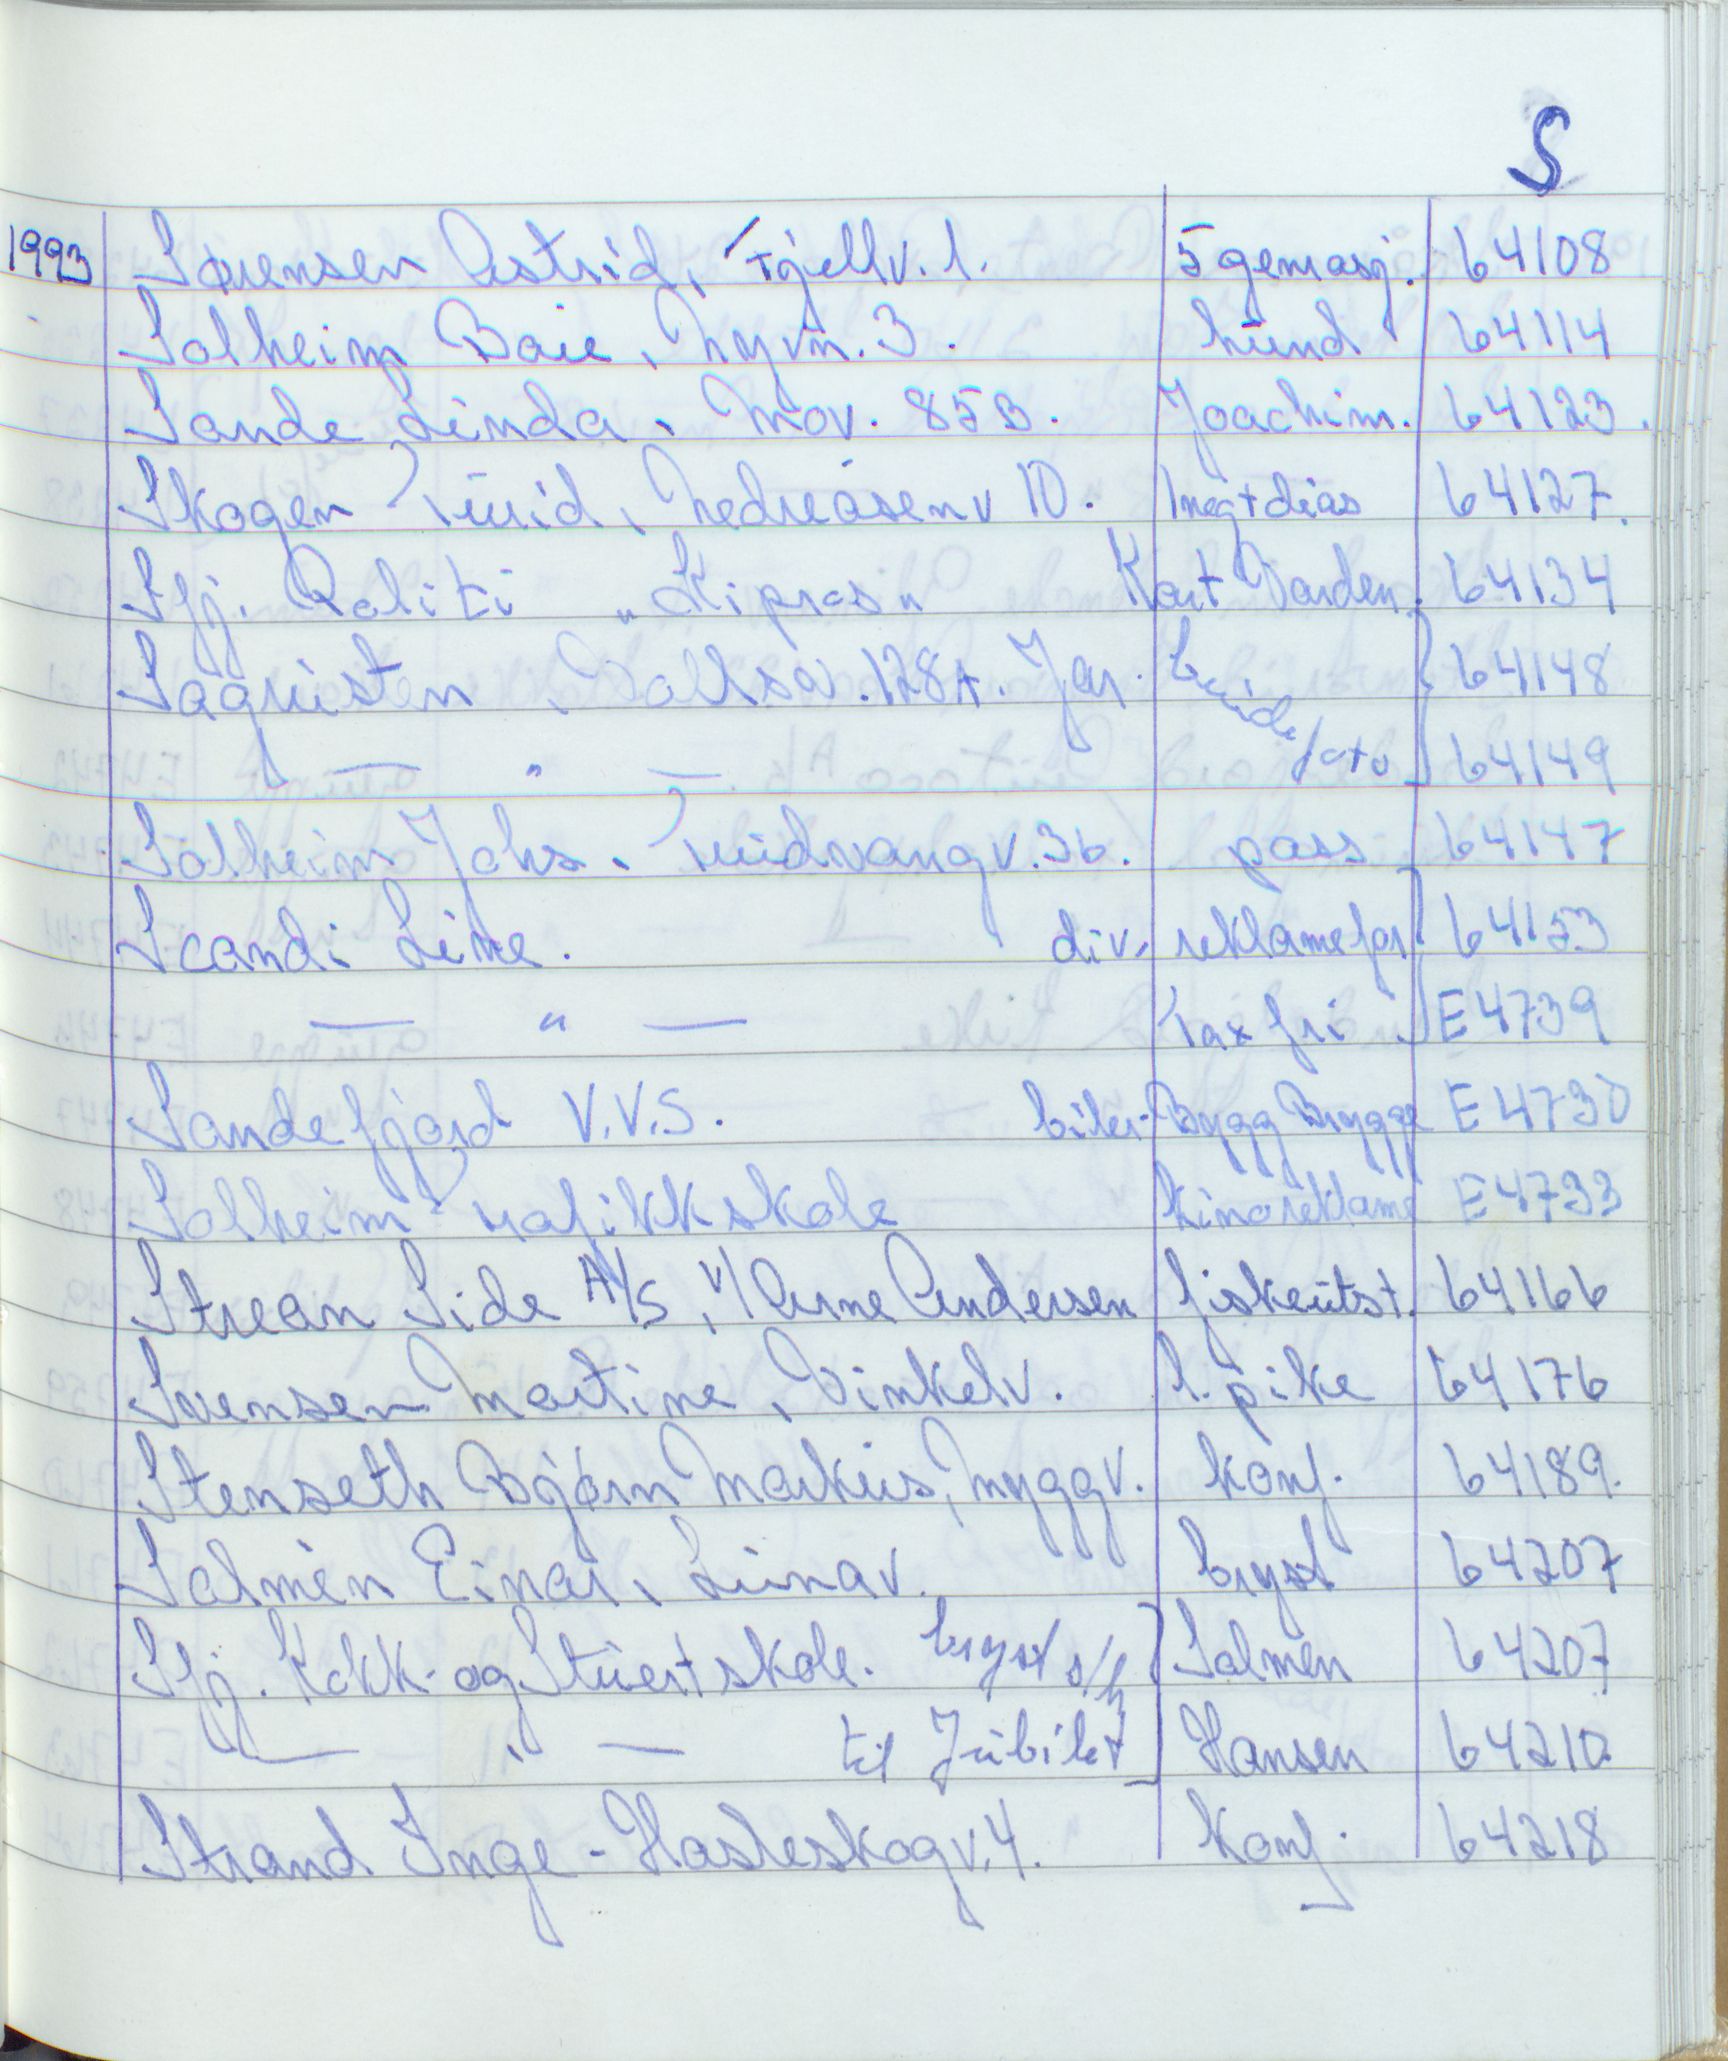 S
1993 Sørensen Astrid, Fjellv. 1. 5 gemasj. 64108
Solheim Baie, Nyvn. 3. hund 64114
Sande Linda, Mov. 85B. Joachim. 64123.
Skogen Turid, Nedreåsenv 10. 1 neg + dias 64127.
Sfj. Politi "Kipros" Kort Varden. 64134
Sagristen, Vollsv. 128A. Jar. beide 64148
— " — foto 64149
Solheim Johs, Trudvangv. 36. pass 64147
Scandi Line. div. reklamefor 64153
— " — Tax fri E4739
Sandefjord V.V.S. biler-Bygg Brygge E4730
Solheim trafikkskole kinoreklame E4733
Strean Side A/S, v/ Arne Andersen fiskeutst. 64166
Svensen Martine, Vinkelv. l. pike 64176
Stenseth Bjørn Markus, Myggv. konf. 64189.
Salmén Einar, Lunav. bryst 64207
Sfj. Kokk- og Stuertskole. bryst s/h Salmén 64207
— " — til Jubileet Hansen 64210.
Strand Inge - Hasleskogv. 4. konf. 64218